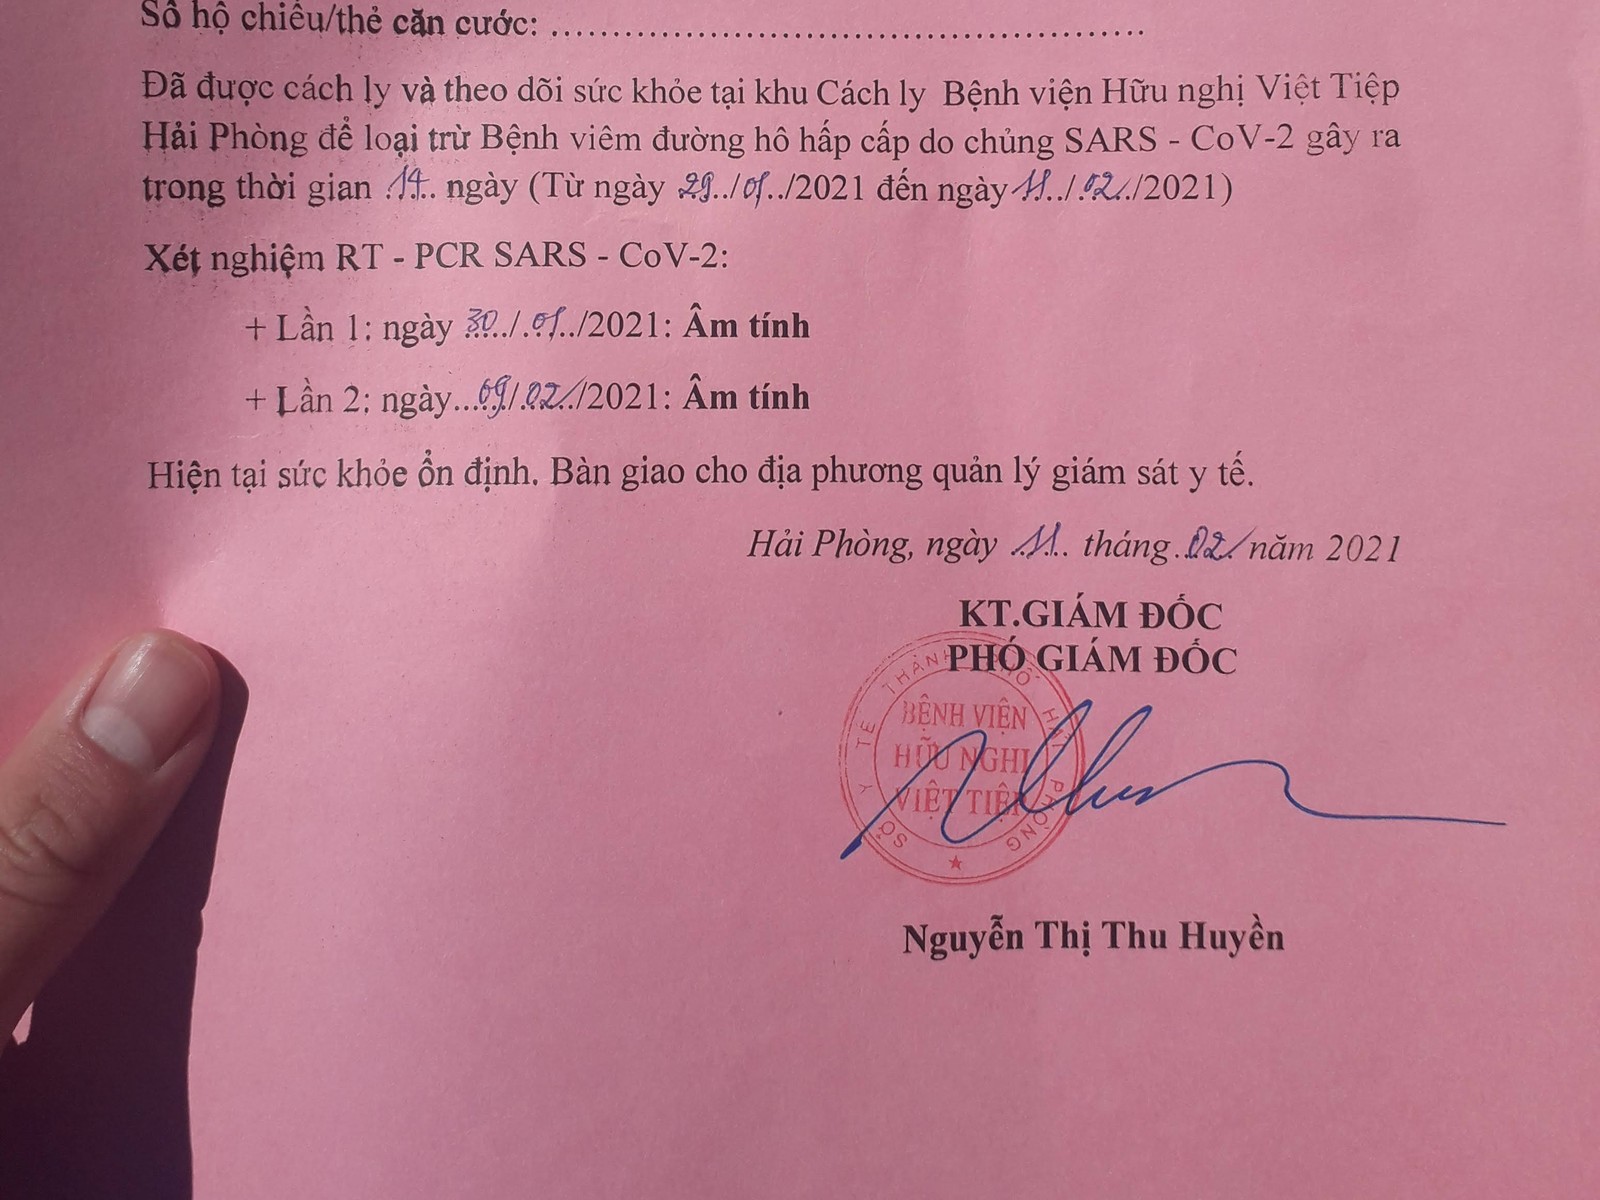 Số hộ chiếu/thẻ căn cước: ....................................................
Đã được cách ly và theo dõi sức khỏe tại khu Cách ly Bệnh viện Hữu nghị Việt Tiệp
Hải Phòng để loại trừ Bệnh viêm đường hô hấp cấp do chủng SARS - CoV-2 gây ra
trong thời gian .14.. ngày (Từ ngày 29../01../2021 đến ngày 11../.02../2021)
Xét nghiệm RT - PCR SARS - CoV-2:
+ Lần 1: ngày 30../.01../2021: Âm tính
+ Lần 2: ngày...09/.02../2021: Âm tính
Hiện tại sức khỏe ổn định. Bàn giao cho địa phương quản lý giám sát y tế.
Hải Phòng, ngày .11.. tháng..02. năm 2021
KT.GIÁM ĐỐC
PHÓ GIÁM ĐỐC
SỞ Y TẾ THÀNH PHỐ HẢI PHÒNG
BỆNH VIỆN
HỮU NGHỊ
VIỆT TIỆP
Nguyễn Thị Thu Huyền